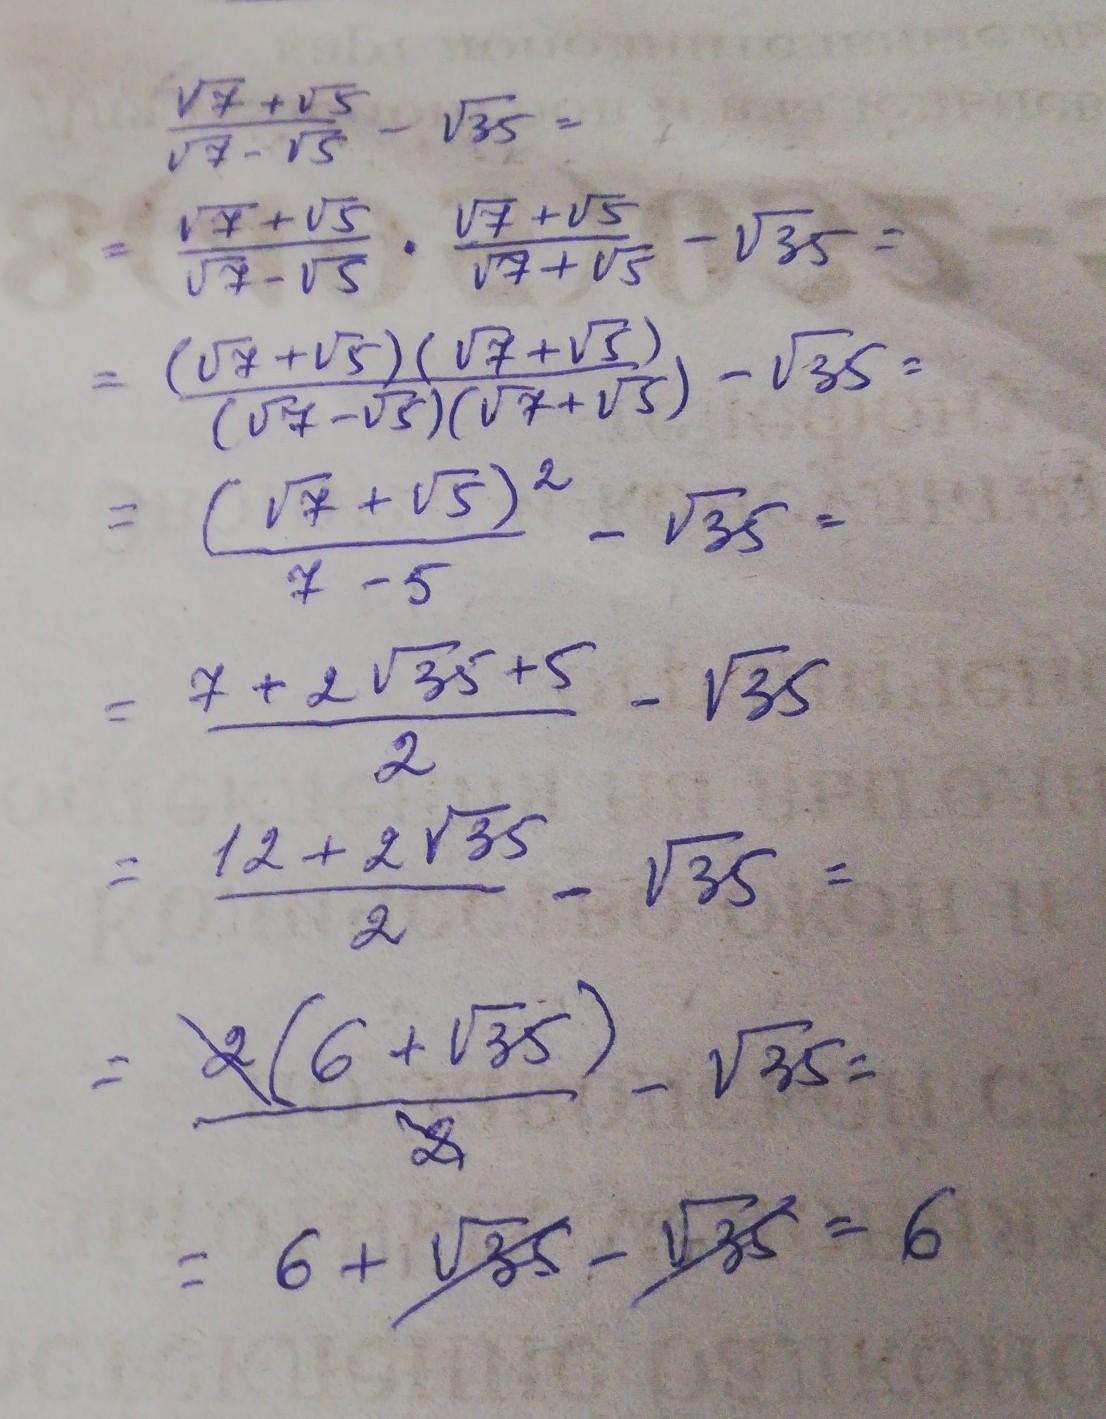 (√7 + √5)/(√7 - √5) - √35 =
= (√7 + √5)/(√7 - √5) · (√7 + √5)/(√7 + √5) - √35 =
= (√7 + √5)(√7 + √5)/(√7 - √5)(√7 + √5) - √35 =
= (√7 + √5)²/(7 - 5) - √35 =
= (7 + 2√35 + 5)/2 - √35
= (12 + 2√35)/2 - √35 =
= 2(6 + √35)/2 - √35 =
= 6 + √35 - √35 = 6